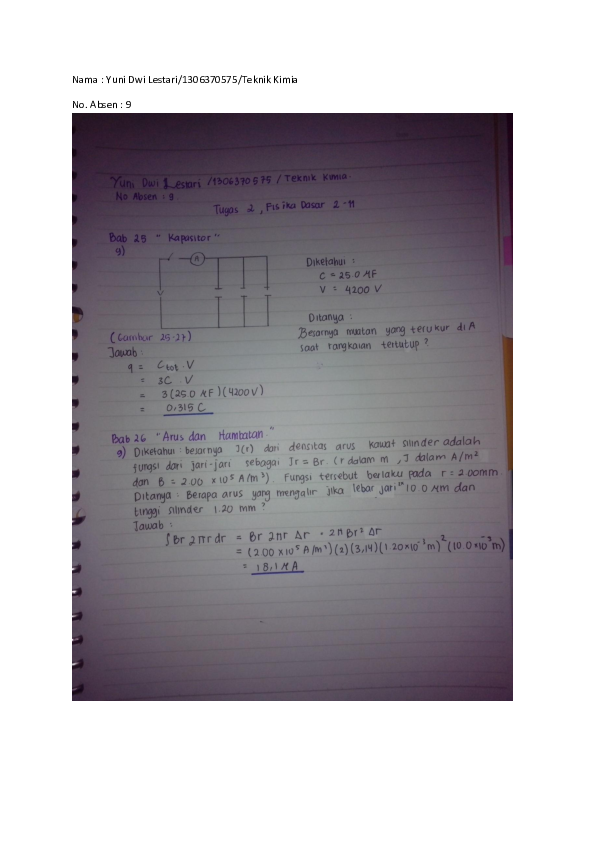 Nama : Yuni Dwi Lestari/1306370575/Teknik Kimia
No. Absen : 9
Yuni Dwi Lestari /1306370575 / Teknik Kimia.
No Absen : 9
Tugas 2 , Fisika Dasar 2 - 11
Bab 25 " Kapasitor "
9)
A
V
Diketahui :
C = 25.0 µF
V = 4200 V
Ditanya :
Besarnya muatan yang terukur di A
saat rangkaian tertutup ?
(Gambar 25-27)
Jawab :
q = Ctot . V
= 3C V
= 3 (25.0 µF) (4200V)
= 0,315 C
Bab 26 "Arus dan Hambatan "
9) Diketahui : besarnya J(r) dari densitas arus kawat silinder adalah
fungsi dari jari-jari sebagai Jr = Br. (r dalam m , J dalam A/m²
dan B = 2.00 x10⁵ A/m³) Fungsi tersebut berlaku pada r = 2.00mm.
Ditanya : Berapa arus yang mengalir jika lebar jari" 10.0 µm dan
tinggi silinder 1.20 mm ?
Jawab :
∫Br 2πr dr = Br 2πr Δr = 2πBr² Δr
= (2.00 x10⁵ A/m³) (2) (3,14) (1.20x10⁻³m)² (10.0x10⁻⁶m)
= 18,1 µA